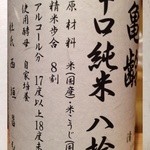 亀齢
辛口純米 八拾
原材料 米(国産)・米こうじ(国
精米歩合 8割
アルコール分 17度以上18度未
使用酵母 自家培養